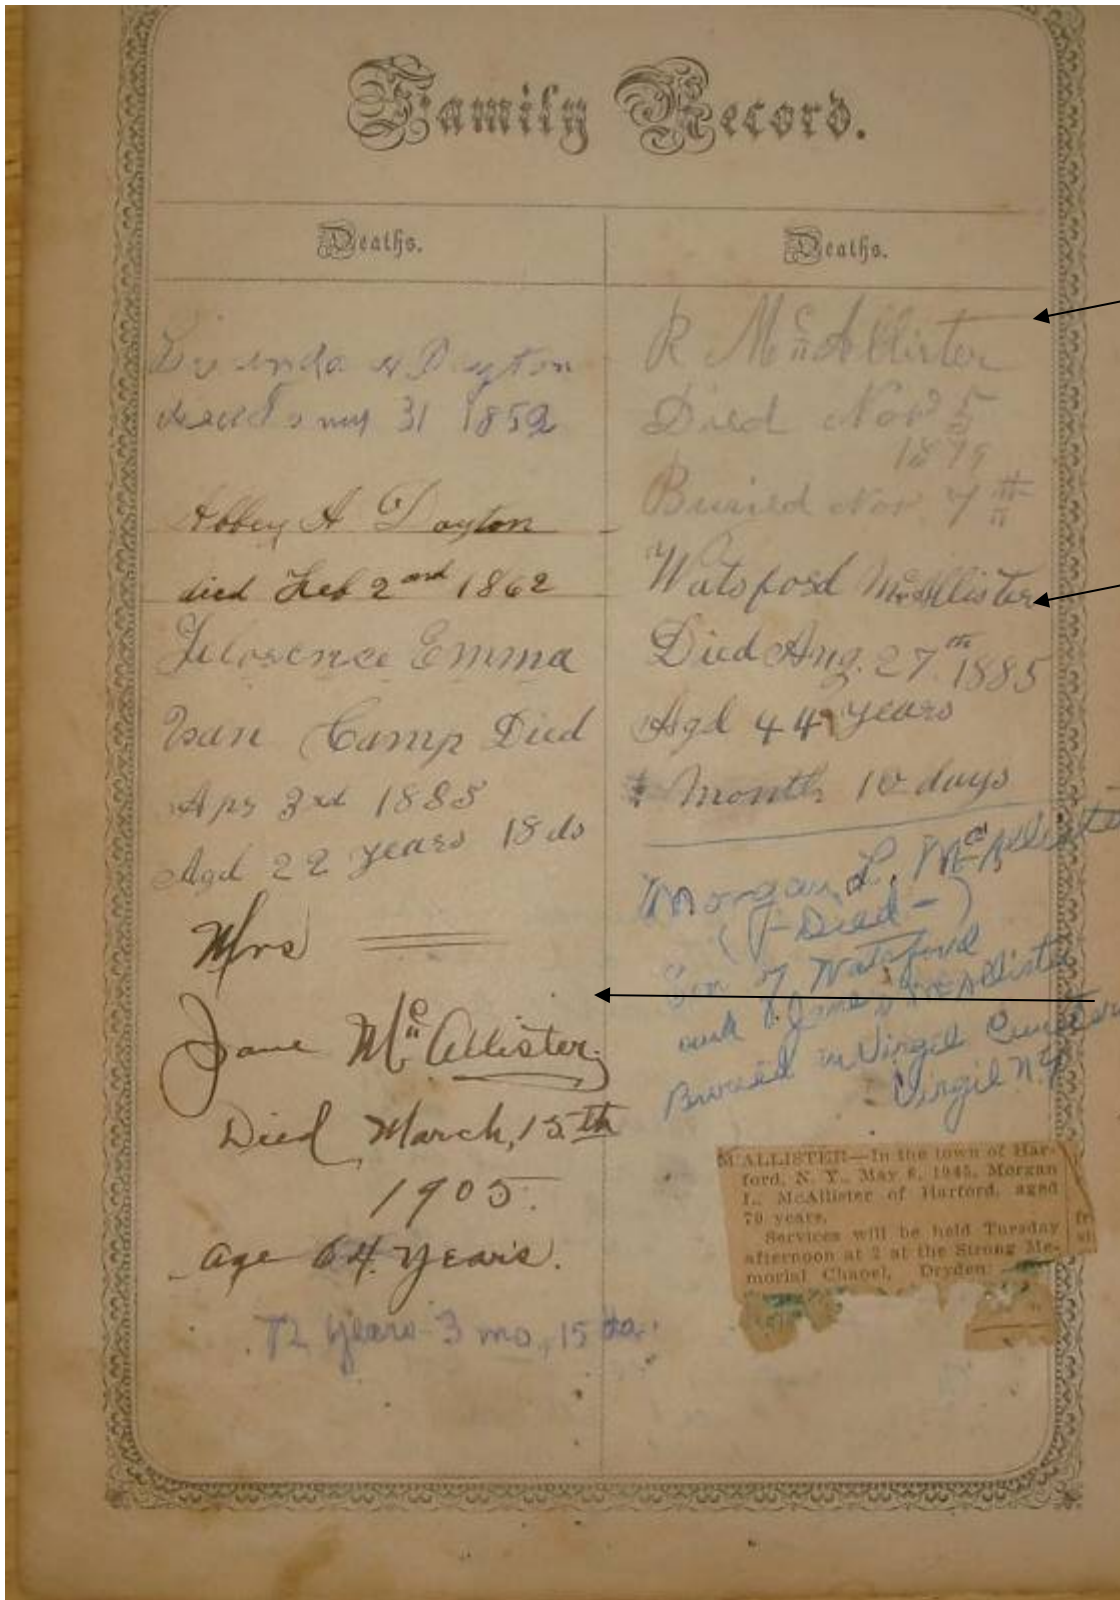 Family Record.
Deaths.
Dayton
31 1852
Abbey A Dayton
died Feb 2nd 1862
Florence Emma
Van Camp Died
Apr 3rd 1885
Agd 22 years 18 ds
Mrs
Jane McAllister
Died March, 15th
1905.
age 64 years.
72 years 3 mo, 15 da.
Deaths.
R McAllister
Died Nov 5
1879
Buried Nov 7th
Watsford McAllister
Died Aug. 27th 1885
Agd 44 years
month 10 days
Morgan L. McAllister
(- Died -)
Son of Watsford
& Jane McAllister
Buried in Virgil
Virgil N.Y.
McALLISTER—In the town of Har-
ford, N. Y., May 6, 1945, Morgan
L. McAllister of Harford, aged
79 years.
Services will be held Tuesday
afternoon at 2 at the Strong Me-
morial Chapel, Dryden.